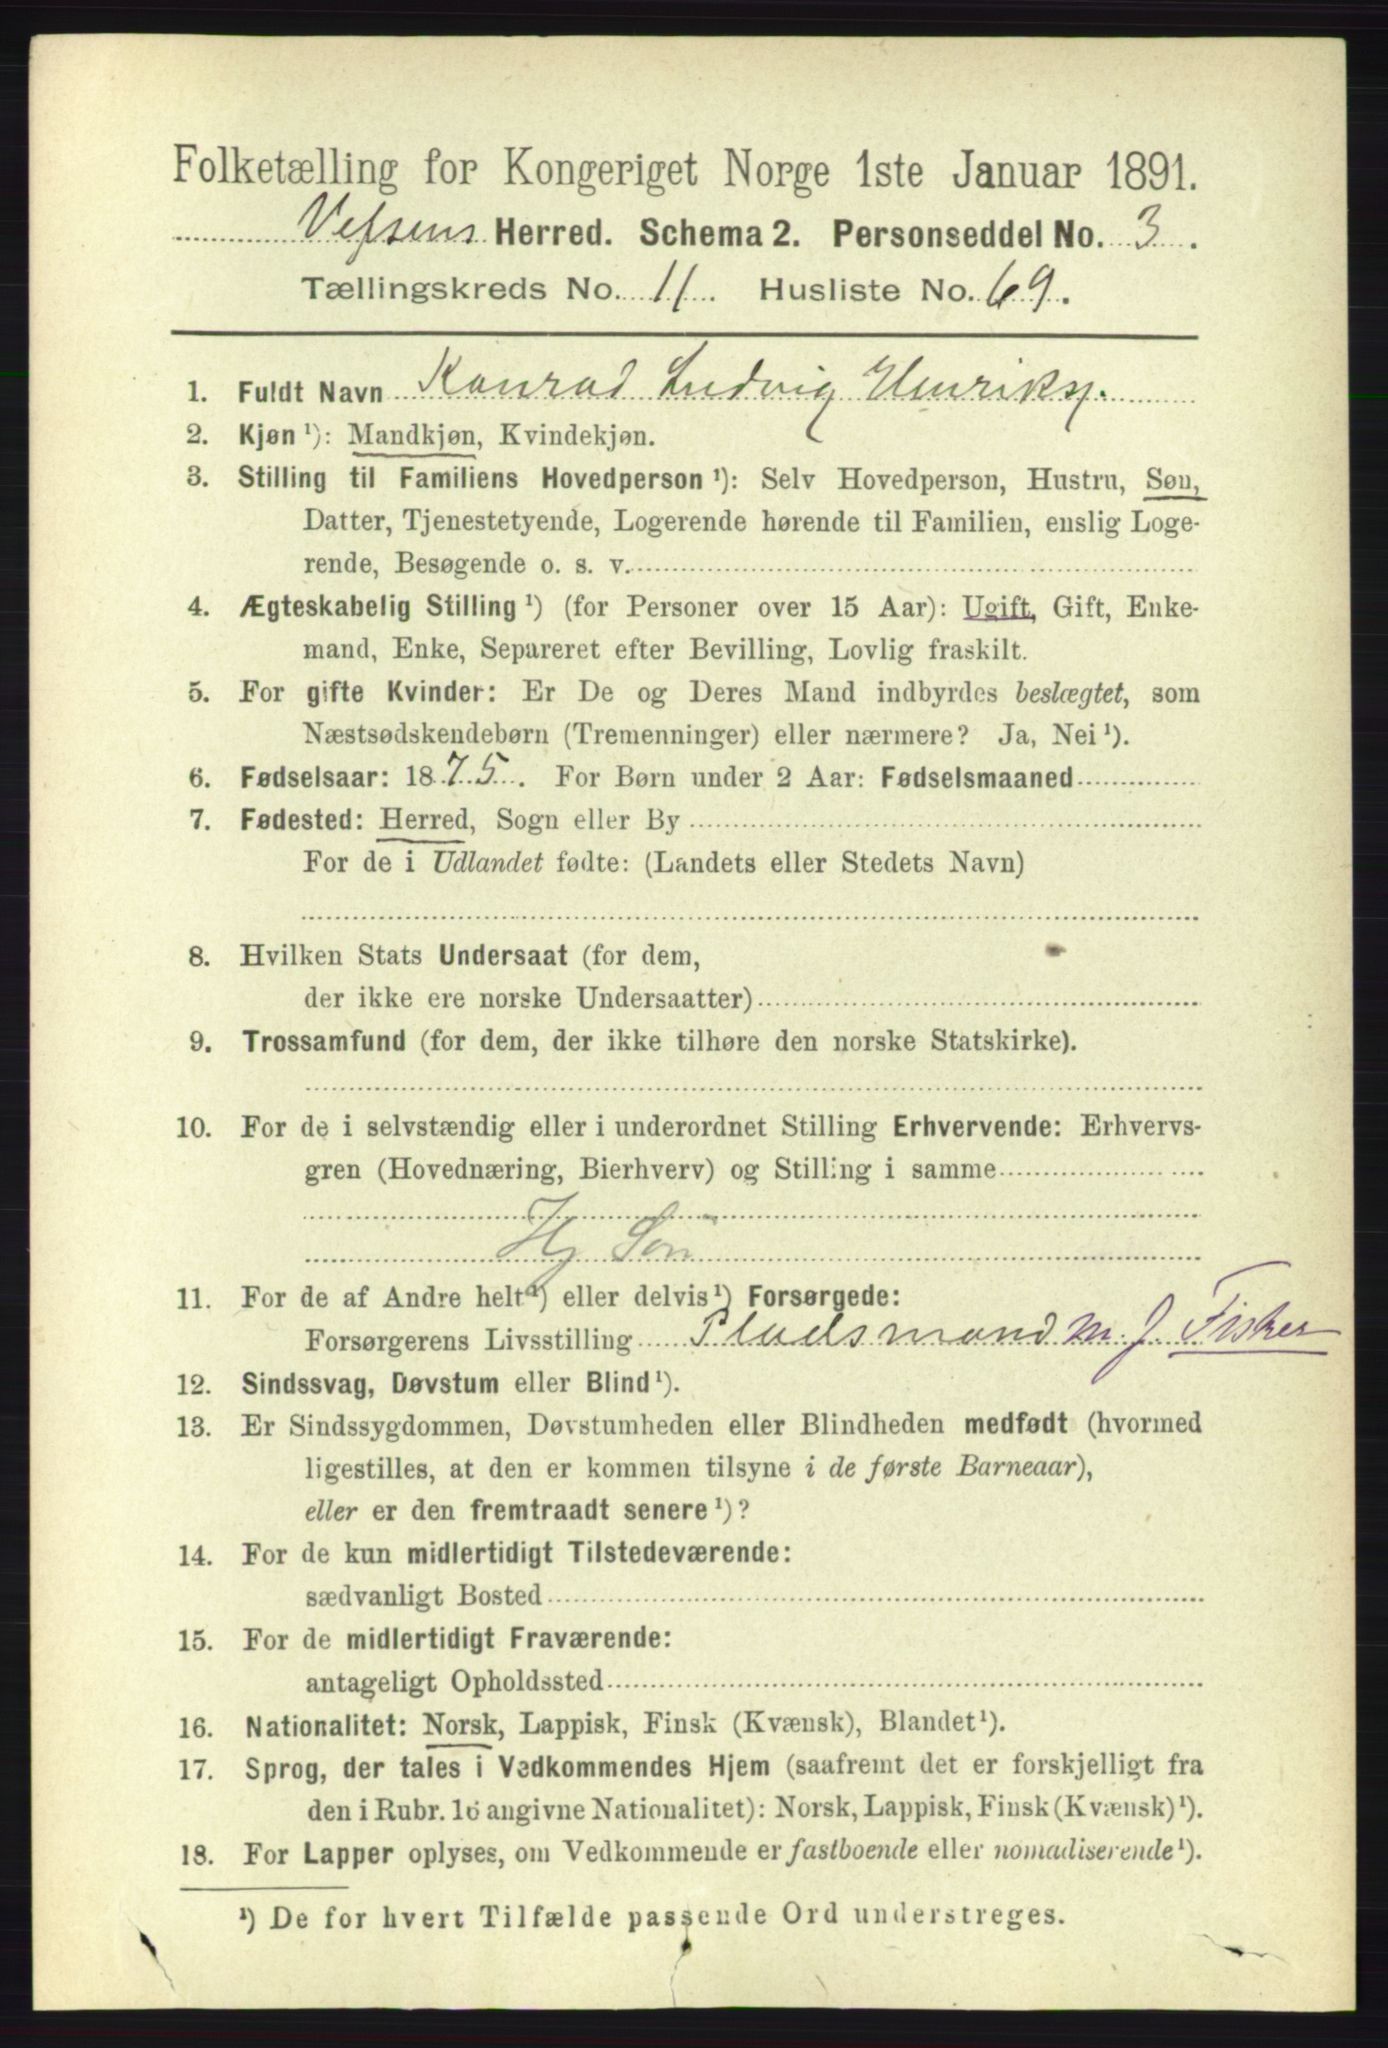 Folketælling for Kongeriget Norge 1ste Januar 1891.
Vefsens Herred. Schema 2. Personseddel No. 3.
Tællingskreds No. 11. Husliste No. 69.
1. Fuldt Navn Konrad Ludvig Henriks.
2. Kjøn ¹): Mandkjøn, Kvindekjøn.
3. Stilling til Familiens Hovedperson ¹): Selv Hovedperson, Hustru, Søn,
Datter, Tjenestetyende, Logerende hørende til Familien, enslig Loge-
rende, Besøgende o. s. v.
4. Ægteskabelig Stilling ¹) (for Personer over 15 Aar): Ugift, Gift, Enke-
mand, Enke, Separeret efter Bevilling, Lovlig fraskilt.
5. For gifte Kvinder: Er De og Deres Mand indbyrdes beslægtet, som
Næstsødskendebørn (Tremenninger) eller nærmere? Ja, Nei ¹).
6. Fødselsaar: 1875. For Børn under 2 Aar: Fødselsmaaned
7. Fødested: Herred, Sogn eller By
For de i Udlandet fødte: (Landets eller Stedets Navn)
8. Hvilken Stats Undersaat (for dem,
der ikke ere norske Undersaatter)
9. Trossamfund (for dem, der ikke tilhøre den norske Statskirke).
10. For de i selvstændig eller i underordnet Stilling Erhvervende: Erhvervs-
gren (Hovednæring, Bierhverv) og Stilling i samme
Hj Søn
11. For de af Andre helt ¹) eller delvis ¹) Forsørgede:
Forsørgerens Livsstilling Pladsmand m. J. Fisker
12. Sindssvag, Døvstum eller Blind ¹).
13. Er Sindssygdommen, Døvstumheden eller Blindheden medfødt (hvormed
ligestilles, at den er kommen tilsyne i de første Barneaar),
eller er den fremtraadt senere ¹)?
14. For de kun midlertidigt Tilstedeværende:
sædvanligt Bosted
15. For de midlertidigt Fraværende:
antageligt Opholdssted
16. Nationalitet: Norsk, Lappisk, Finsk (Kvænsk), Blandet ¹).
17. Sprog, der tales i Vedkommendes Hjem (saafremt det er forskjelligt fra
den i Rubr. 16 angivne Nationalitet): Norsk, Lappisk, Finsk (Kvænsk) ¹).
18. For Lapper oplyses, om Vedkommende er fastboende eller nomadiserende ¹).
¹) De for hvert Tilfælde passende Ord understreges.